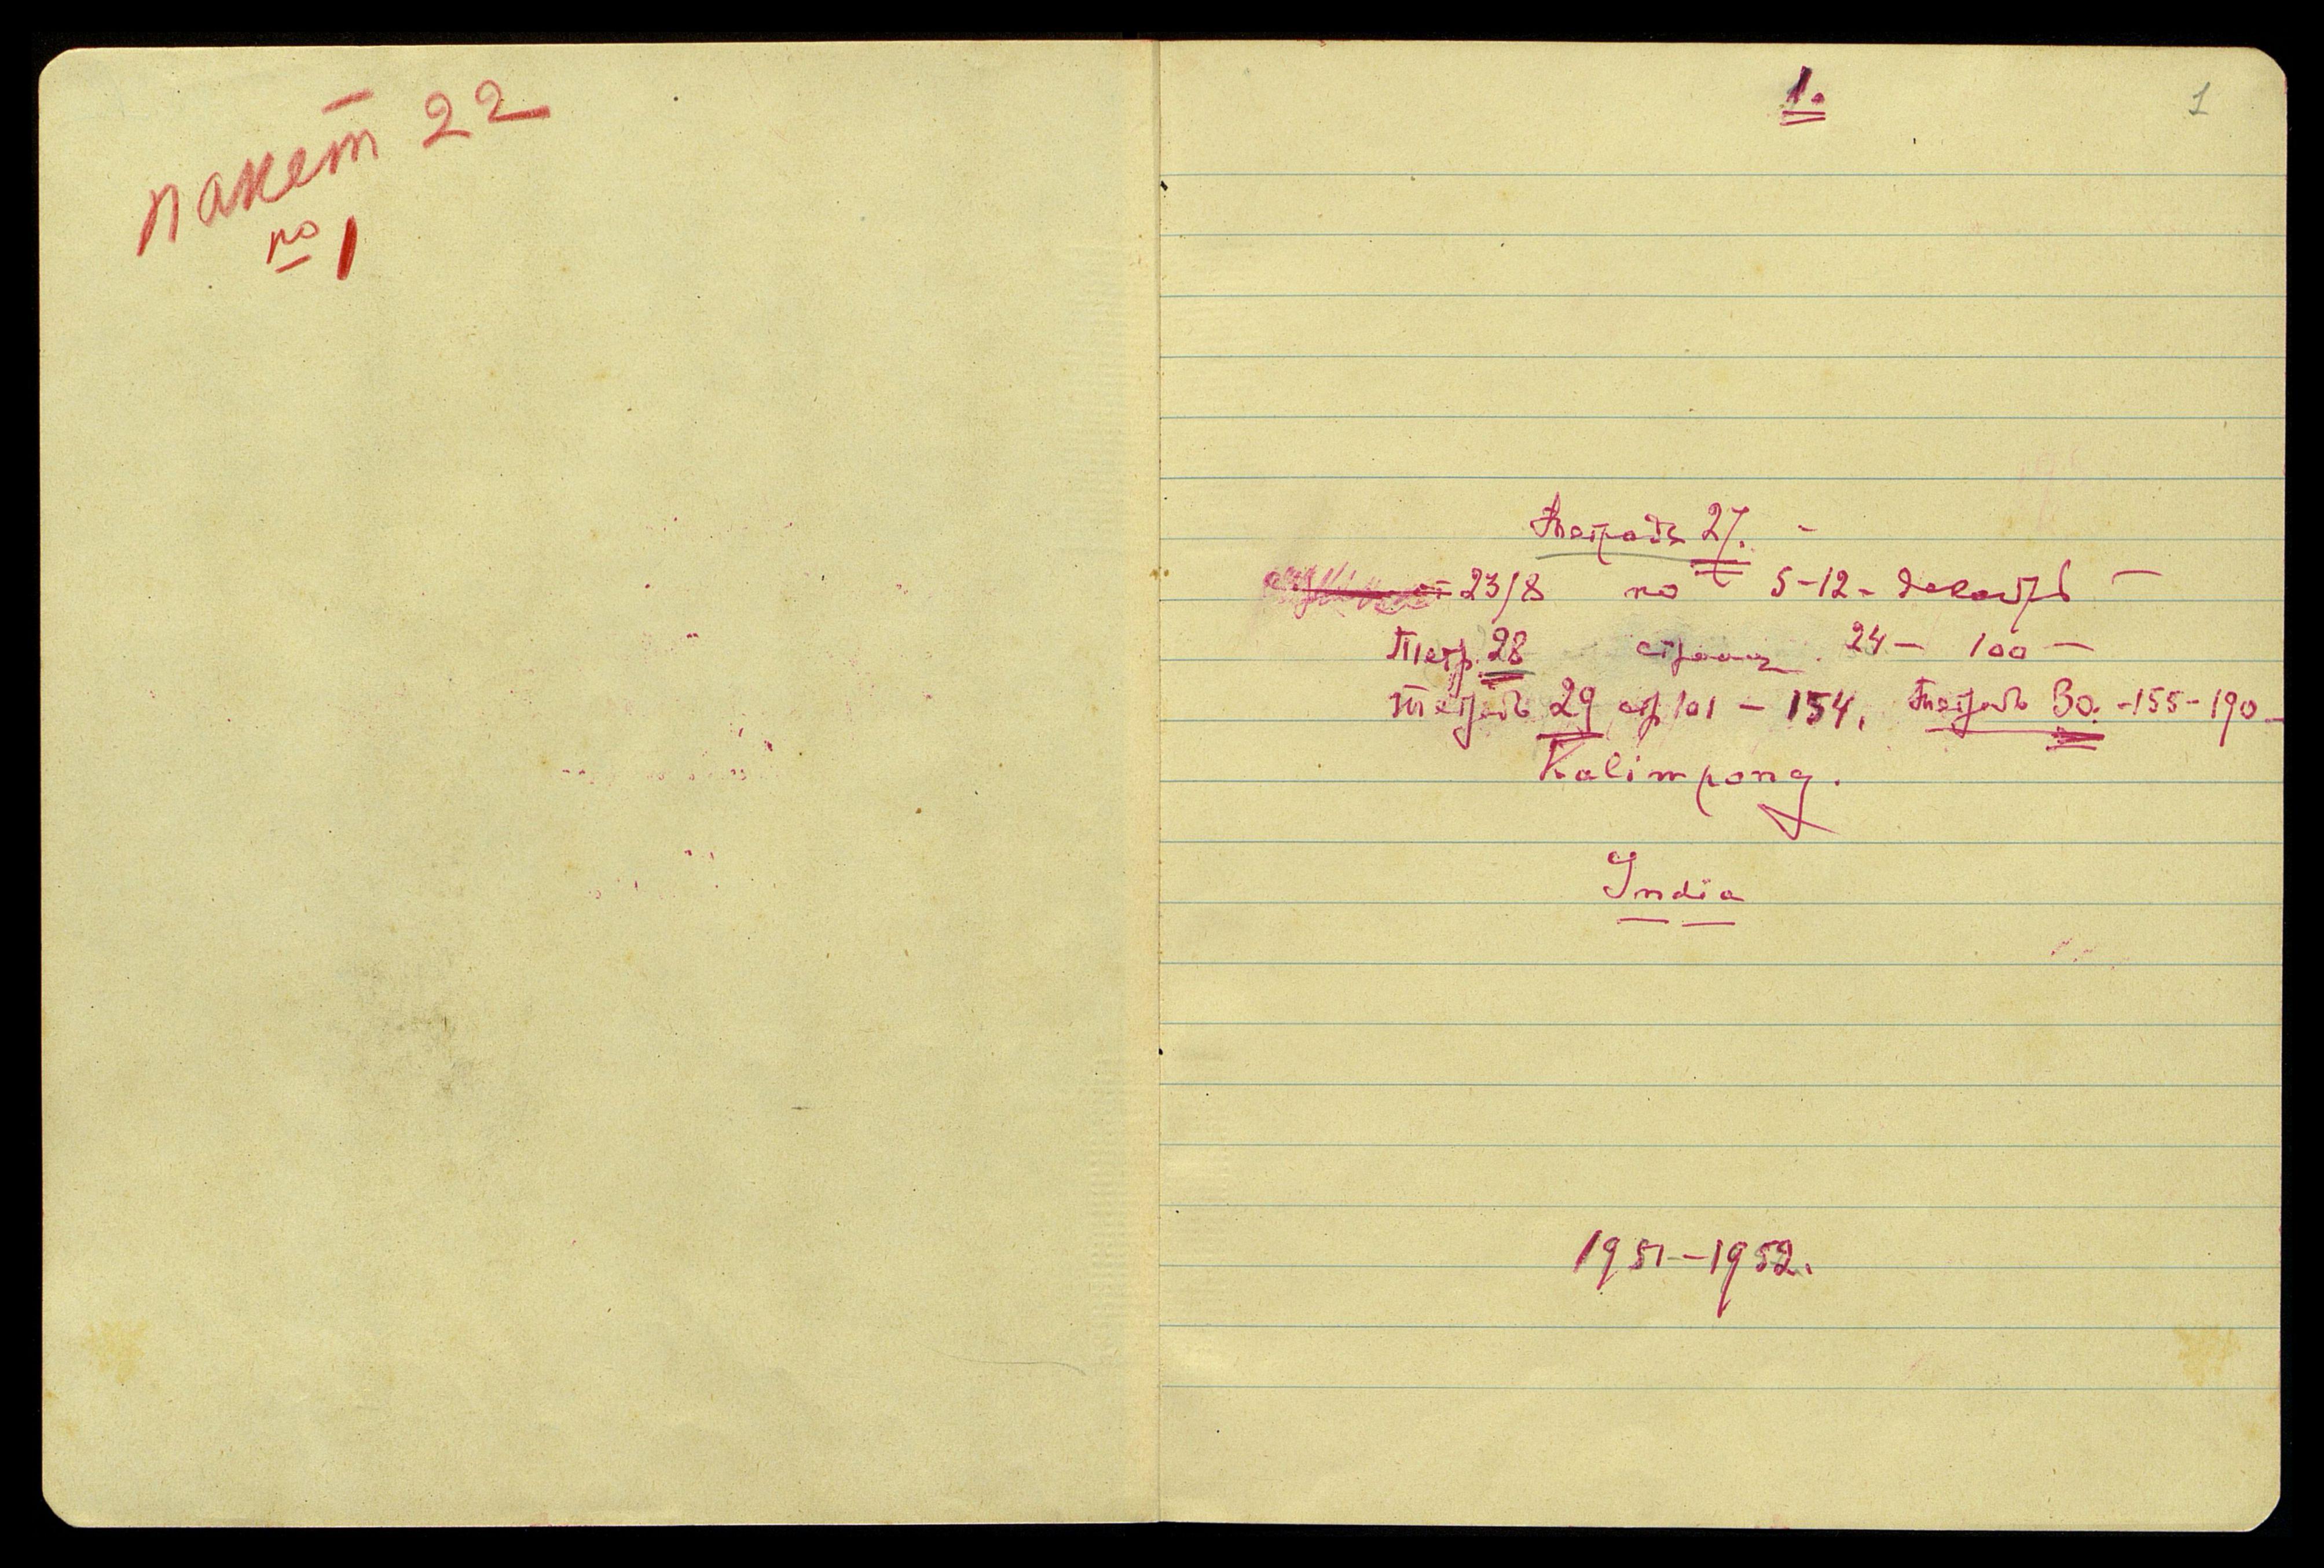 пакет 22
no 1
1.
1
Тетрадь 27. -
23/8 по 5-12- декабрь -
Тетр. 28 страниц. 24 - 100 -
Тетрадь 29 стр 101 - 154, Тетрадь 30. -155-190-
Kalimpong.
India
1951-1952.